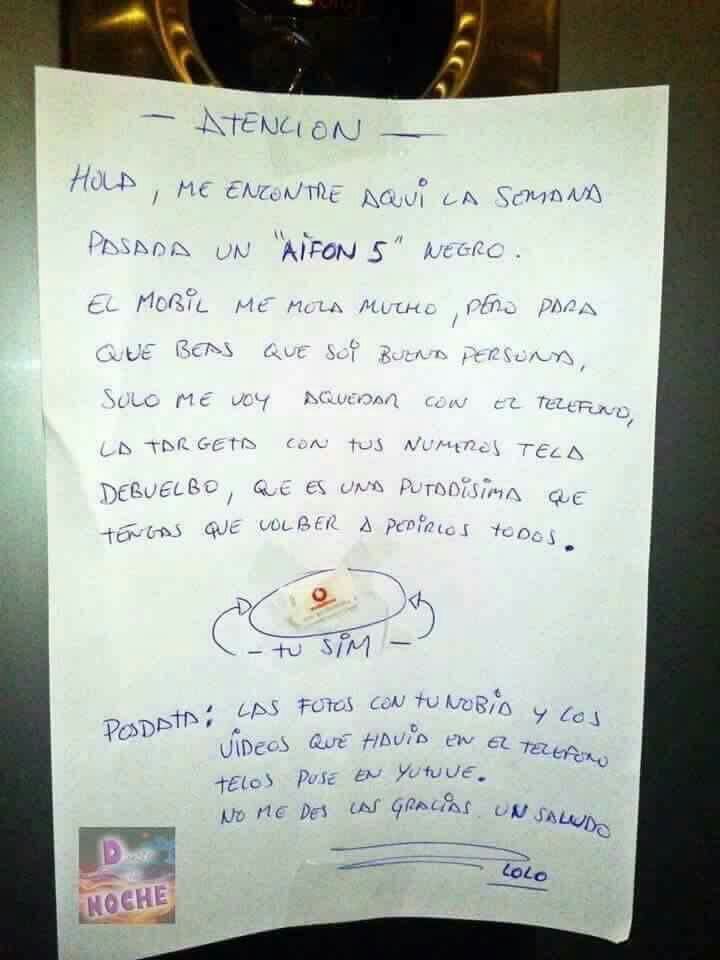 — ATENCION —
HOLA, ME ENCONTRE AQUI LA SEMANA
PASADA UN "AIFON 5" NEGRO.
EL MOBIL ME MOLA MUCHO, PERO PARA
QUE BEAS QUE SOI BUENA PERSONA,
SOLO ME VOY AQUEDAR CON EL TELEFONO,
LA TARGETA CON TUS NUMEROS TELA
DEBUELBO, QUE ES UNA PUTADISIMA QUE
TENGAS QUE VOLBER A PEDIRLOS TODOS.
vodafone
- TU SIM -
POSDATA: LAS FOTOS CON TU NOBIA Y LOS
VIDEOS QUE HAVIA EN EL TELEFONO
TELOS PUSE EN YUTUVE.
NO ME DES LAS GRACIAS. UN SALUDO
LOLO
D
NOCHE